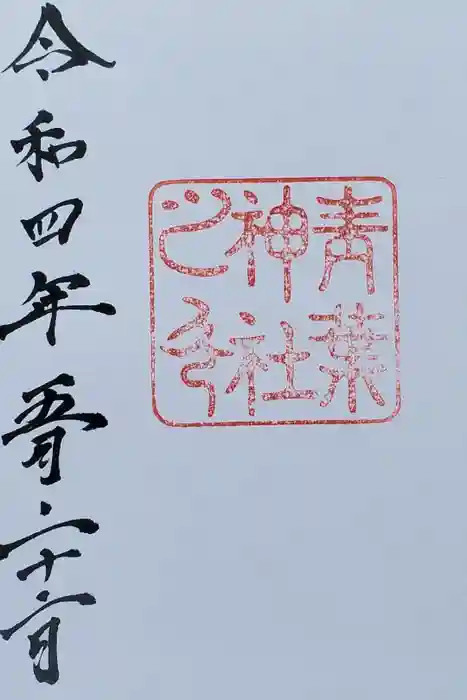 青葉
神社
之印
令和四年五月二十六日